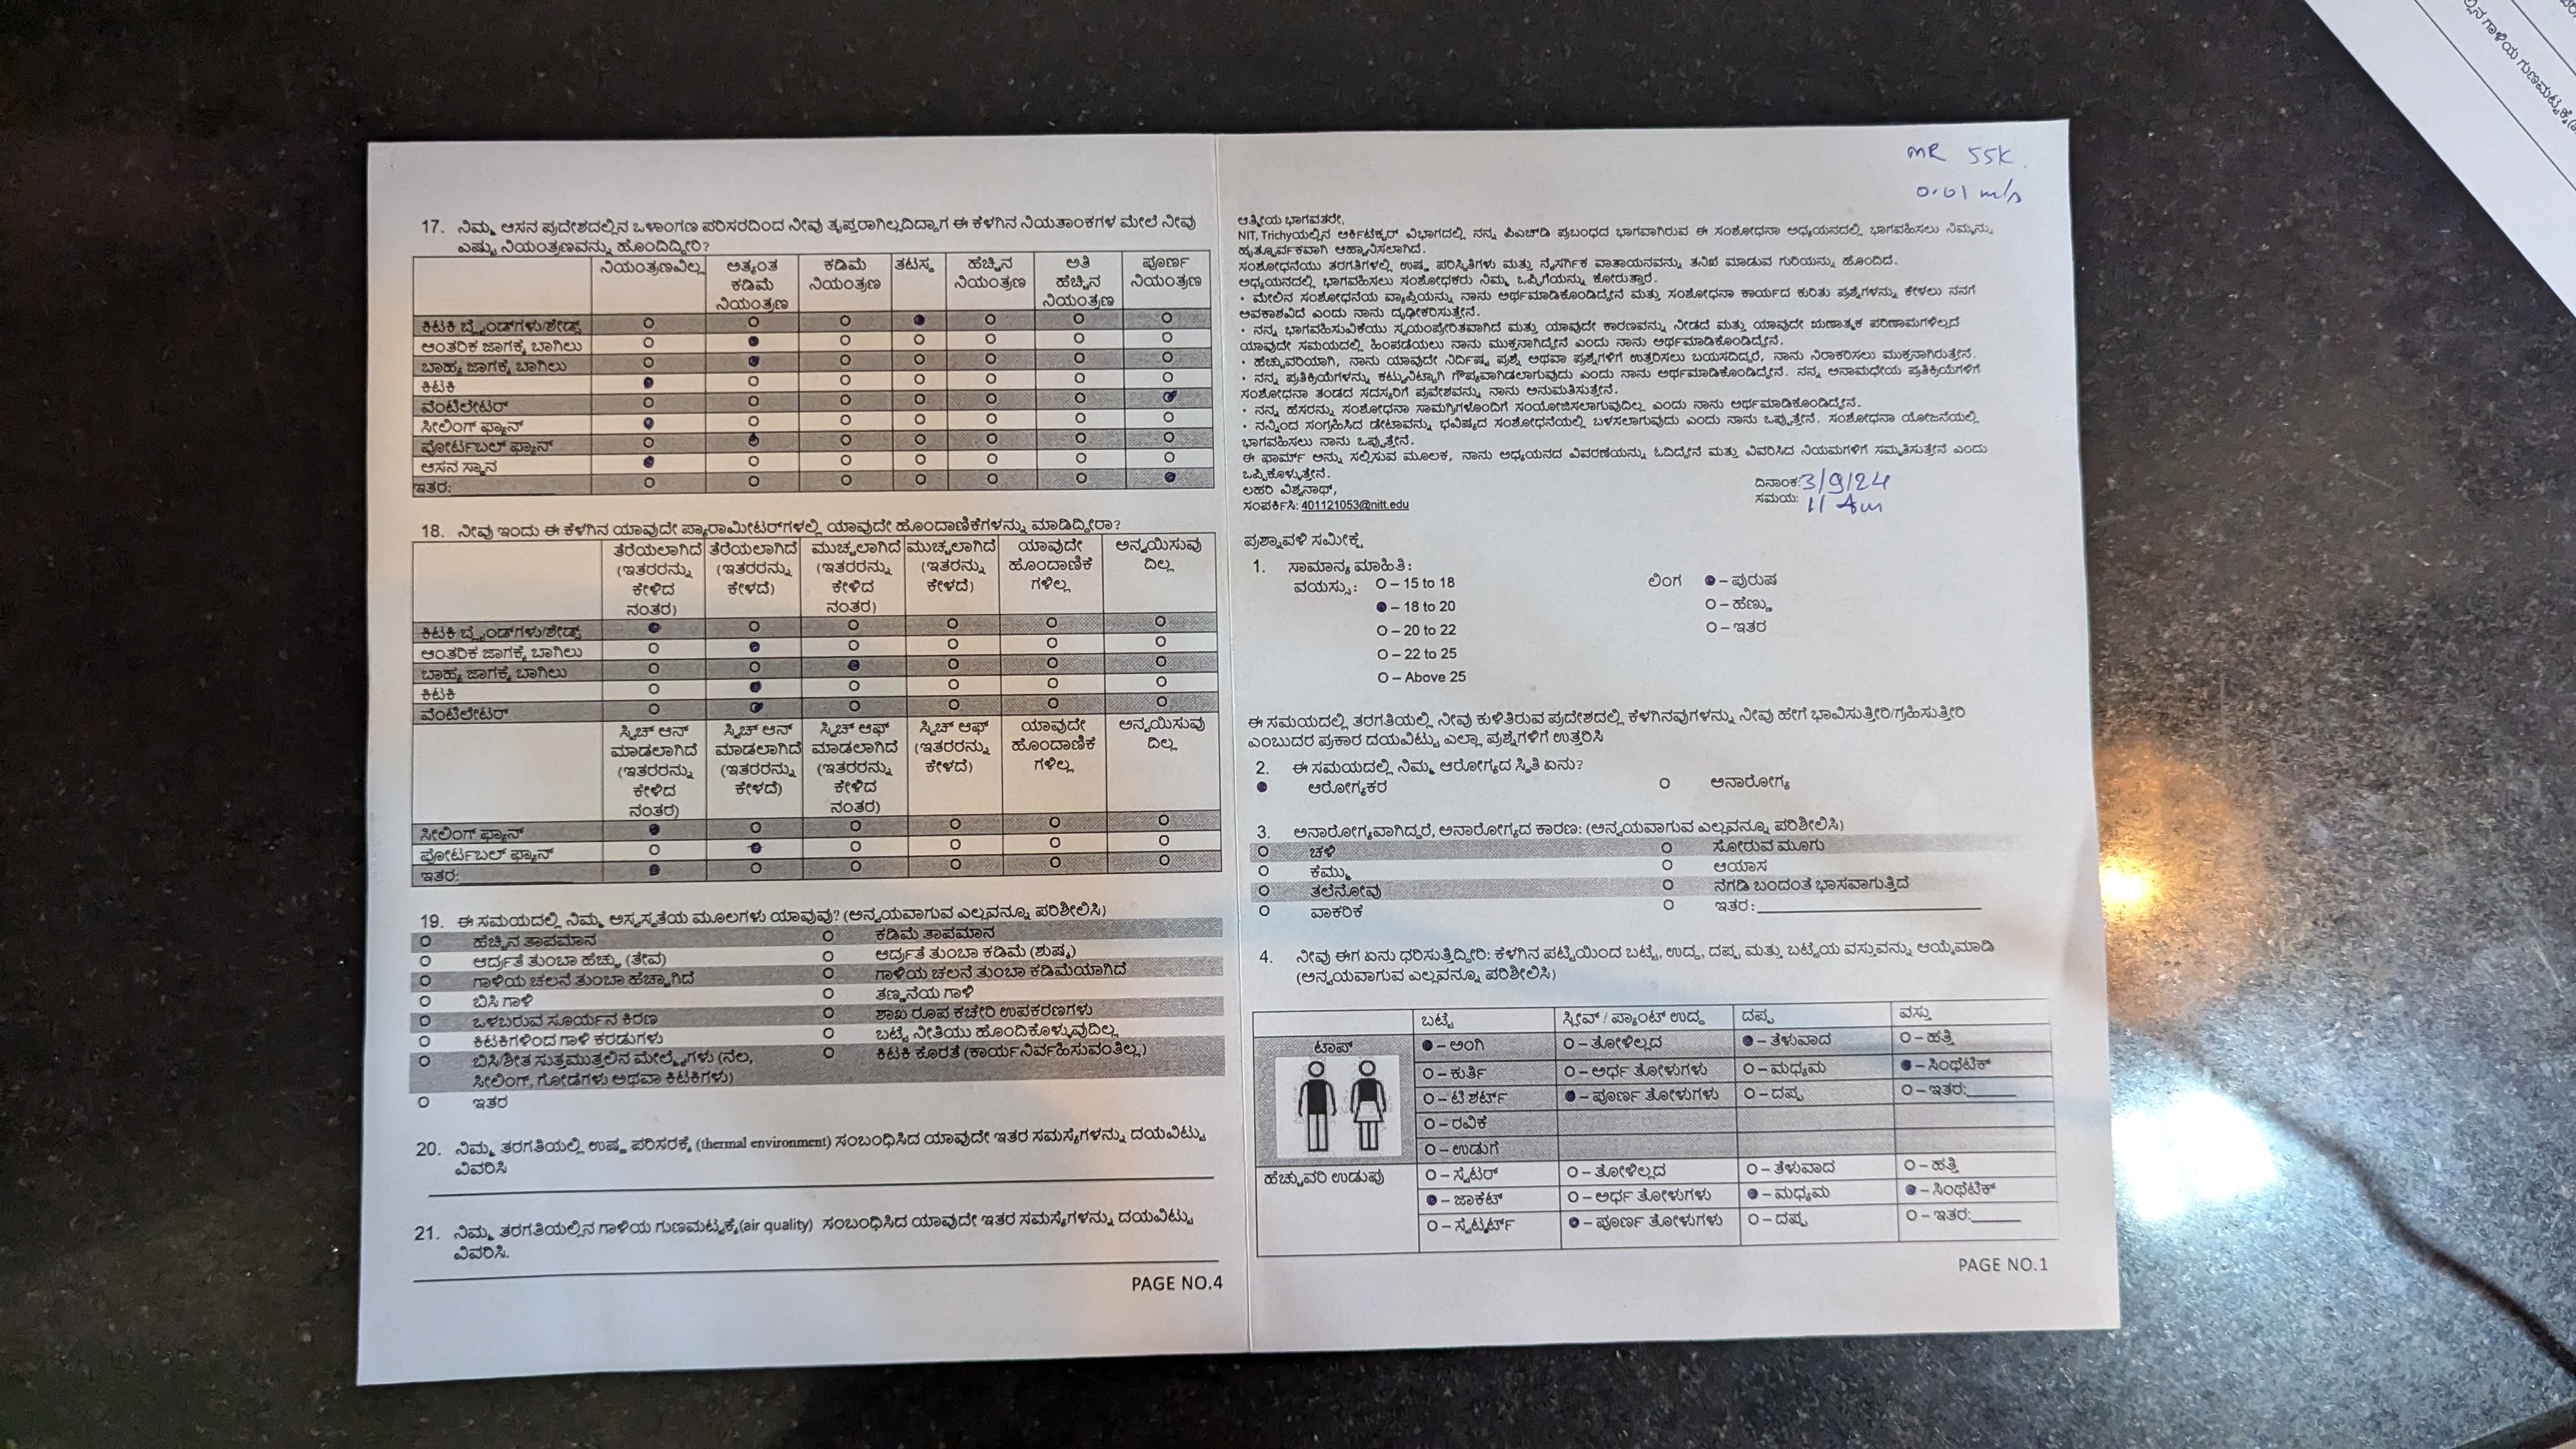 17. ನಿಮ್ಮ ಆಸನ ಪ್ರದೇಶದಲ್ಲಿನ ಒಳಾಂಗಣ ಪರಿಸರದಿಂದ ನೀವು ತೃಪ್ತರಾಗಿಲ್ಲದಿದ್ದಾಗ ಈ ಕೆಳಗಿನ ನಿಯತಾಂಕಗಳ ಮೇಲೆ ನೀವು
ಎಷ್ಟು ನಿಯಂತ್ರಣವನ್ನು ಹೊಂದಿದ್ದೀರಿ?
ನಿಯಂತ್ರಣವಿಲ್ಲ ಅತ್ಯಂತ ಕಡಿಮೆ ನಿಯಂತ್ರಣ ಕಡಿಮೆ ನಿಯಂತ್ರಣ ತಟಸ್ಥ ಹೆಚ್ಚಿನ ನಿಯಂತ್ರಣ ಅತಿ ಹೆಚ್ಚಿನ ನಿಯಂತ್ರಣ ಪೂರ್ಣ ನಿಯಂತ್ರಣ
ಕಿಟಕಿ ಬ್ಲೈಂಡ್‌ಗಳು/ಶೇಡ್ಸ್
ಆಂತರಿಕ ಜಾಗಕ್ಕೆ ಬಾಗಿಲು
ಬಾಹ್ಯ ಜಾಗಕ್ಕೆ ಬಾಗಿಲು
ಕಿಟಕಿ
ವೆಂಟಿಲೇಟರ್
ಸೀಲಿಂಗ್ ಫ್ಯಾನ್
ಪೋರ್ಟಬಲ್ ಫ್ಯಾನ್
ಆಸನ ಸ್ಥಾನ
ಇತರ:
18. ನೀವು ಇಂದು ಈ ಕೆಳಗಿನ ಯಾವುದೇ ಪ್ಯಾರಾಮೀಟರ್‌ಗಳಲ್ಲಿ ಯಾವುದೇ ಹೊಂದಾಣಿಕೆಗಳನ್ನು ಮಾಡಿದ್ದೀರಾ?
ತೆರೆಯಲಾಗಿದೆ (ಇತರರನ್ನು ಕೇಳಿದ ನಂತರ) ತೆರೆಯಲಾಗಿದೆ (ಇತರರನ್ನು ಕೇಳದೆ) ಮುಚ್ಚಲಾಗಿದೆ (ಇತರರನ್ನು ಕೇಳಿದ ನಂತರ) ಮುಚ್ಚಲಾಗಿದೆ (ಇತರನ್ನು ಕೇಳದೆ) ಯಾವುದೇ ಹೊಂದಾಣಿಕೆ ಗಳಿಲ್ಲ ಅನ್ವಯಿಸುವು ದಿಲ್ಲ
ಕಿಟಕಿ ಬ್ಲೈಂಡ್‌ಗಳು/ಶೇಡ್ಸ್
ಆಂತರಿಕ ಜಾಗಕ್ಕೆ ಬಾಗಿಲು
ಬಾಹ್ಯ ಜಾಗಕ್ಕೆ ಬಾಗಿಲು
ಕಿಟಕಿ
ವೆಂಟಿಲೇಟರ್
ಸ್ವಿಚ್ ಆನ್ ಮಾಡಲಾಗಿದೆ (ಇತರರನ್ನು ಕೇಳಿದ ನಂತರ) ಸ್ವಿಚ್ ಆನ್ ಮಾಡಲಾಗಿದೆ (ಇತರರನ್ನು ಕೇಳದೆ) ಸ್ವಿಚ್ ಆಫ್ ಮಾಡಲಾಗಿದೆ (ಇತರರನ್ನು ಕೇಳಿದ ನಂತರ) ಸ್ವಿಚ್ ಆಫ್ (ಇತರರನ್ನು ಕೇಳದೆ) ಯಾವುದೇ ಹೊಂದಾಣಿಕೆ ಗಳಿಲ್ಲ ಅನ್ವಯಿಸುವು ದಿಲ್ಲ
ಸೀಲಿಂಗ್ ಫ್ಯಾನ್
ಪೋರ್ಟಬಲ್ ಫ್ಯಾನ್
ಇತರ:
19. ಈ ಸಮಯದಲ್ಲಿ ನಿಮ್ಮ ಅಸ್ವಸ್ಥತೆಯ ಮೂಲಗಳು ಯಾವುವು? (ಅನ್ವಯವಾಗುವ ಎಲ್ಲವನ್ನೂ ಪರಿಶೀಲಿಸಿ)
ಹೆಚ್ಚಿನ ತಾಪಮಾನ ಕಡಿಮೆ ತಾಪಮಾನ
ಆರ್ದ್ರತೆ ತುಂಬಾ ಹೆಚ್ಚು (ತೇವ) ಆರ್ದ್ರತೆ ತುಂಬಾ ಕಡಿಮೆ (ಶುಷ್ಕ)
ಗಾಳಿಯ ಚಲನೆ ತುಂಬಾ ಹೆಚ್ಚಾಗಿದೆ ಗಾಳಿಯ ಚಲನೆ ತುಂಬಾ ಕಡಿಮೆಯಾಗಿದೆ
ಬಿಸಿ ಗಾಳಿ ತಣ್ಣನೆಯ ಗಾಳಿ
ಒಳಬರುವ ಸೂರ್ಯನ ಕಿರಣ ಶಾಖ ರೂಪ ಕಚೇರಿ ಉಪಕರಣಗಳು
ಕಿಟಕಿಗಳಿಂದ ಗಾಳಿ ಕರಡುಗಳು ಬಟ್ಟೆ ನೀತಿಯು ಹೊಂದಿಕೊಳ್ಳುವುದಿಲ್ಲ
ಬಿಸಿ/ಶೀತ ಸುತ್ತಮುತ್ತಲಿನ ಮೇಲ್ಮೈಗಳು (ನೆಲ, ಕಿಟಕಿ ಕೊರತೆ (ಕಾರ್ಯನಿರ್ವಹಿಸುವಂತಿಲ್ಲ)
ಸೀಲಿಂಗ್, ಗೋಡೆಗಳು ಅಥವಾ ಕಿಟಕಿಗಳು)
ಇತರ
20. ನಿಮ್ಮ ತರಗತಿಯಲ್ಲಿ ಉಷ್ಣ ಪರಿಸರಕ್ಕೆ (thermal environment) ಸಂಬಂಧಿಸಿದ ಯಾವುದೇ ಇತರ ಸಮಸ್ಯೆಗಳನ್ನು ದಯವಿಟ್ಟು
ವಿವರಿಸಿ
21. ನಿಮ್ಮ ತರಗತಿಯಲ್ಲಿನ ಗಾಳಿಯ ಗುಣಮಟ್ಟಕ್ಕೆ(air quality) ಸಂಬಂಧಿಸಿದ ಯಾವುದೇ ಇತರ ಸಮಸ್ಯೆಗಳನ್ನು ದಯವಿಟ್ಟು
ವಿವರಿಸಿ.
PAGE NO.4
MR 55K
0.01 m/s
ಆತ್ಮೀಯ ಭಾಗವತರೇ,
NIT, Trichyಯಲ್ಲಿನ ಆರ್ಕಿಟೆಕ್ಚರ್ ವಿಭಾಗದಲ್ಲಿ ನನ್ನ ಪಿಎಚ್‌ಡಿ ಪ್ರಬಂಧದ ಭಾಗವಾಗಿರುವ ಈ ಸಂಶೋಧನಾ ಅಧ್ಯಯನದಲ್ಲಿ ಭಾಗವಹಿಸಲು ನಿಮ್ಮನ್ನು
ಹೃತ್ಪೂರ್ವಕವಾಗಿ ಆಹ್ವಾನಿಸಲಾಗಿದೆ.
ಸಂಶೋಧನೆಯು ತರಗತಿಗಳಲ್ಲಿ ಉಷ್ಣ ಪರಿಸ್ಥಿತಿಗಳು ಮತ್ತು ನೈಸರ್ಗಿಕ ವಾತಾಯನವನ್ನು ತನಿಖೆ ಮಾಡುವ ಗುರಿಯನ್ನು ಹೊಂದಿದೆ.
ಅಧ್ಯಯನದಲ್ಲಿ ಭಾಗವಹಿಸಲು ಸಂಶೋಧಕರು ನಿಮ್ಮ ಒಪ್ಪಿಗೆಯನ್ನು ಕೋರುತ್ತಾರೆ.
• ಮೇಲಿನ ಸಂಶೋಧನೆಯ ವ್ಯಾಪ್ತಿಯನ್ನು ನಾನು ಅರ್ಥಮಾಡಿಕೊಂಡಿದ್ದೇನೆ ಮತ್ತು ಸಂಶೋಧನಾ ಕಾರ್ಯದ ಕುರಿತು ಪ್ರಶ್ನೆಗಳನ್ನು ಕೇಳಲು ನನಗೆ
ಅವಕಾಶವಿದೆ ಎಂದು ನಾನು ದೃಢೀಕರಿಸುತ್ತೇನೆ.
• ನನ್ನ ಭಾಗವಹಿಸುವಿಕೆಯು ಸ್ವಯಂಪ್ರೇರಿತವಾಗಿದೆ ಮತ್ತು ಯಾವುದೇ ಕಾರಣವನ್ನು ನೀಡದೆ ಮತ್ತು ಯಾವುದೇ ಋಣಾತ್ಮಕ ಪರಿಣಾಮಗಳಿಲ್ಲದೆ
ಯಾವುದೇ ಸಮಯದಲ್ಲಿ ಹಿಂಪಡೆಯಲು ನಾನು ಮುಕ್ತನಾಗಿದ್ದೇನೆ ಎಂದು ನಾನು ಅರ್ಥಮಾಡಿಕೊಂಡಿದ್ದೇನೆ.
• ಹೆಚ್ಚುವರಿಯಾಗಿ, ನಾನು ಯಾವುದೇ ನಿರ್ದಿಷ್ಟ ಪ್ರಶ್ನೆ ಅಥವಾ ಪ್ರಶ್ನೆಗಳಿಗೆ ಉತ್ತರಿಸಲು ಬಯಸದಿದ್ದರೆ, ನಾನು ನಿರಾಕರಿಸಲು ಮುಕ್ತನಾಗಿರುತ್ತೇನೆ.
• ನನ್ನ ಪ್ರತಿಕ್ರಿಯೆಗಳನ್ನು ಕಟ್ಟುನಿಟ್ಟಾಗಿ ಗೌಪ್ಯವಾಗಿಡಲಾಗುವುದು ಎಂದು ನಾನು ಅರ್ಥಮಾಡಿಕೊಂಡಿದ್ದೇನೆ. ನನ್ನ ಅನಾಮಧೇಯ ಪ್ರತಿಕ್ರಿಯೆಗಳಿಗೆ
ಸಂಶೋಧನಾ ತಂಡದ ಸದಸ್ಯರಿಗೆ ಪ್ರವೇಶವನ್ನು ನಾನು ಅನುಮತಿಸುತ್ತೇನೆ.
• ನನ್ನ ಹೆಸರನ್ನು ಸಂಶೋಧನಾ ಸಾಮಗ್ರಿಗಳೊಂದಿಗೆ ಸಂಯೋಜಿಸಲಾಗುವುದಿಲ್ಲ ಎಂದು ನಾನು ಅರ್ಥಮಾಡಿಕೊಂಡಿದ್ದೇನೆ.
• ನನ್ನಿಂದ ಸಂಗ್ರಹಿಸಿದ ಡೇಟಾವನ್ನು ಭವಿಷ್ಯದ ಸಂಶೋಧನೆಯಲ್ಲಿ ಬಳಸಲಾಗುವುದು ಎಂದು ನಾನು ಒಪ್ಪುತ್ತೇನೆ. ಸಂಶೋಧನಾ ಯೋಜನೆಯಲ್ಲಿ
ಭಾಗವಹಿಸಲು ನಾನು ಒಪ್ಪುತ್ತೇನೆ.
ಈ ಫಾರ್ಮ್ ಅನ್ನು ಸಲ್ಲಿಸುವ ಮೂಲಕ, ನಾನು ಅಧ್ಯಯನದ ವಿವರಣೆಯನ್ನು ಓದಿದ್ದೇನೆ ಮತ್ತು ವಿವರಿಸಿದ ನಿಯಮಗಳಿಗೆ ಸಮ್ಮತಿಸುತ್ತೇನೆ ಎಂದು
ಒಪ್ಪಿಕೊಳ್ಳುತ್ತೇನೆ.
ಲಹರಿ ವಿಶ್ವನಾಥ್,
ಸಂಪರ್ಕಿಸಿ: 401121053@nitt.edu
ದಿನಾಂಕ: 3/9/24
ಸಮಯ: 11 Am
ಪ್ರಶ್ನಾವಳಿ ಸಮೀಕ್ಷೆ
1. ಸಾಮಾನ್ಯ ಮಾಹಿತಿ:
ವಯಸ್ಸು: – 15 to 18 ಲಿಂಗ – ಪುರುಷ
– 18 to 20 – ಹೆಣ್ಣು
– 20 to 22 – ಇತರ
– 22 to 25
– Above 25
ಈ ಸಮಯದಲ್ಲಿ ತರಗತಿಯಲ್ಲಿ ನೀವು ಕುಳಿತಿರುವ ಪ್ರದೇಶದಲ್ಲಿ ಕೆಳಗಿನವುಗಳನ್ನು ನೀವು ಹೇಗೆ ಭಾವಿಸುತ್ತೀರಿ/ಗ್ರಹಿಸುತ್ತೀರಿ
ಎಂಬುದರ ಪ್ರಕಾರ ದಯವಿಟ್ಟು ಎಲ್ಲಾ ಪ್ರಶ್ನೆಗಳಿಗೆ ಉತ್ತರಿಸಿ
2. ಈ ಸಮಯದಲ್ಲಿ ನಿಮ್ಮ ಆರೋಗ್ಯದ ಸ್ಥಿತಿ ಏನು?
ಆರೋಗ್ಯಕರ ಅನಾರೋಗ್ಯ
3. ಅನಾರೋಗ್ಯವಾಗಿದ್ದರೆ, ಅನಾರೋಗ್ಯದ ಕಾರಣ: (ಅನ್ವಯವಾಗುವ ಎಲ್ಲವನ್ನೂ ಪರಿಶೀಲಿಸಿ)
ಚಳಿ ಸೋರುವ ಮೂಗು
ಕೆಮ್ಮು ಆಯಾಸ
ತಲೆನೋವು ನೆಗಡಿ ಬಂದಂತೆ ಭಾಸವಾಗುತ್ತಿದೆ
ವಾಕರಿಕೆ ಇತರ:
4. ನೀವು ಈಗ ಏನು ಧರಿಸುತ್ತಿದ್ದೀರಿ: ಕೆಳಗಿನ ಪಟ್ಟಿಯಿಂದ ಬಟ್ಟೆ, ಉದ್ದ, ದಪ್ಪ ಮತ್ತು ಬಟ್ಟೆಯ ವಸ್ತುವನ್ನು ಆಯ್ಕೆಮಾಡಿ
(ಅನ್ವಯವಾಗುವ ಎಲ್ಲವನ್ನೂ ಪರಿಶೀಲಿಸಿ)
ಬಟ್ಟೆ ಸ್ಲೀವ್ / ಪ್ಯಾಂಟ್ ಉದ್ದ ದಪ್ಪ ವಸ್ತು
ಟಾಪ್ – ಅಂಗಿ – ತೋಳಿಲ್ಲದ – ತೆಳುವಾದ – ಹತ್ತಿ
– ಕುರ್ತಿ – ಅರ್ಧ ತೋಳುಗಳು – ಮಧ್ಯಮ – ಸಿಂಥಟಿಕ್
– ಟಿ ಶರ್ಟ್ – ಪೂರ್ಣ ತೋಳುಗಳು – ದಪ್ಪ – ಇತರ:
– ರವಿಕೆ
– ಉಡುಗೆ
ಹೆಚ್ಚುವರಿ ಉಡುಪು – ಸ್ವೆಟರ್ – ತೋಳಿಲ್ಲದ – ತೆಳುವಾದ – ಹತ್ತಿ
– ಜಾಕೆಟ್ – ಅರ್ಧ ತೋಳುಗಳು – ಮಧ್ಯಮ – ಸಿಂಥಟಿಕ್
– ಸ್ವೆಟ್ಶರ್ಟ್ – ಪೂರ್ಣ ತೋಳುಗಳು – ದಪ್ಪ – ಇತರ:
PAGE NO.1
ಗಾಳಿಯ ಗುಣಮಟ್ಟಕ್ಕೆ